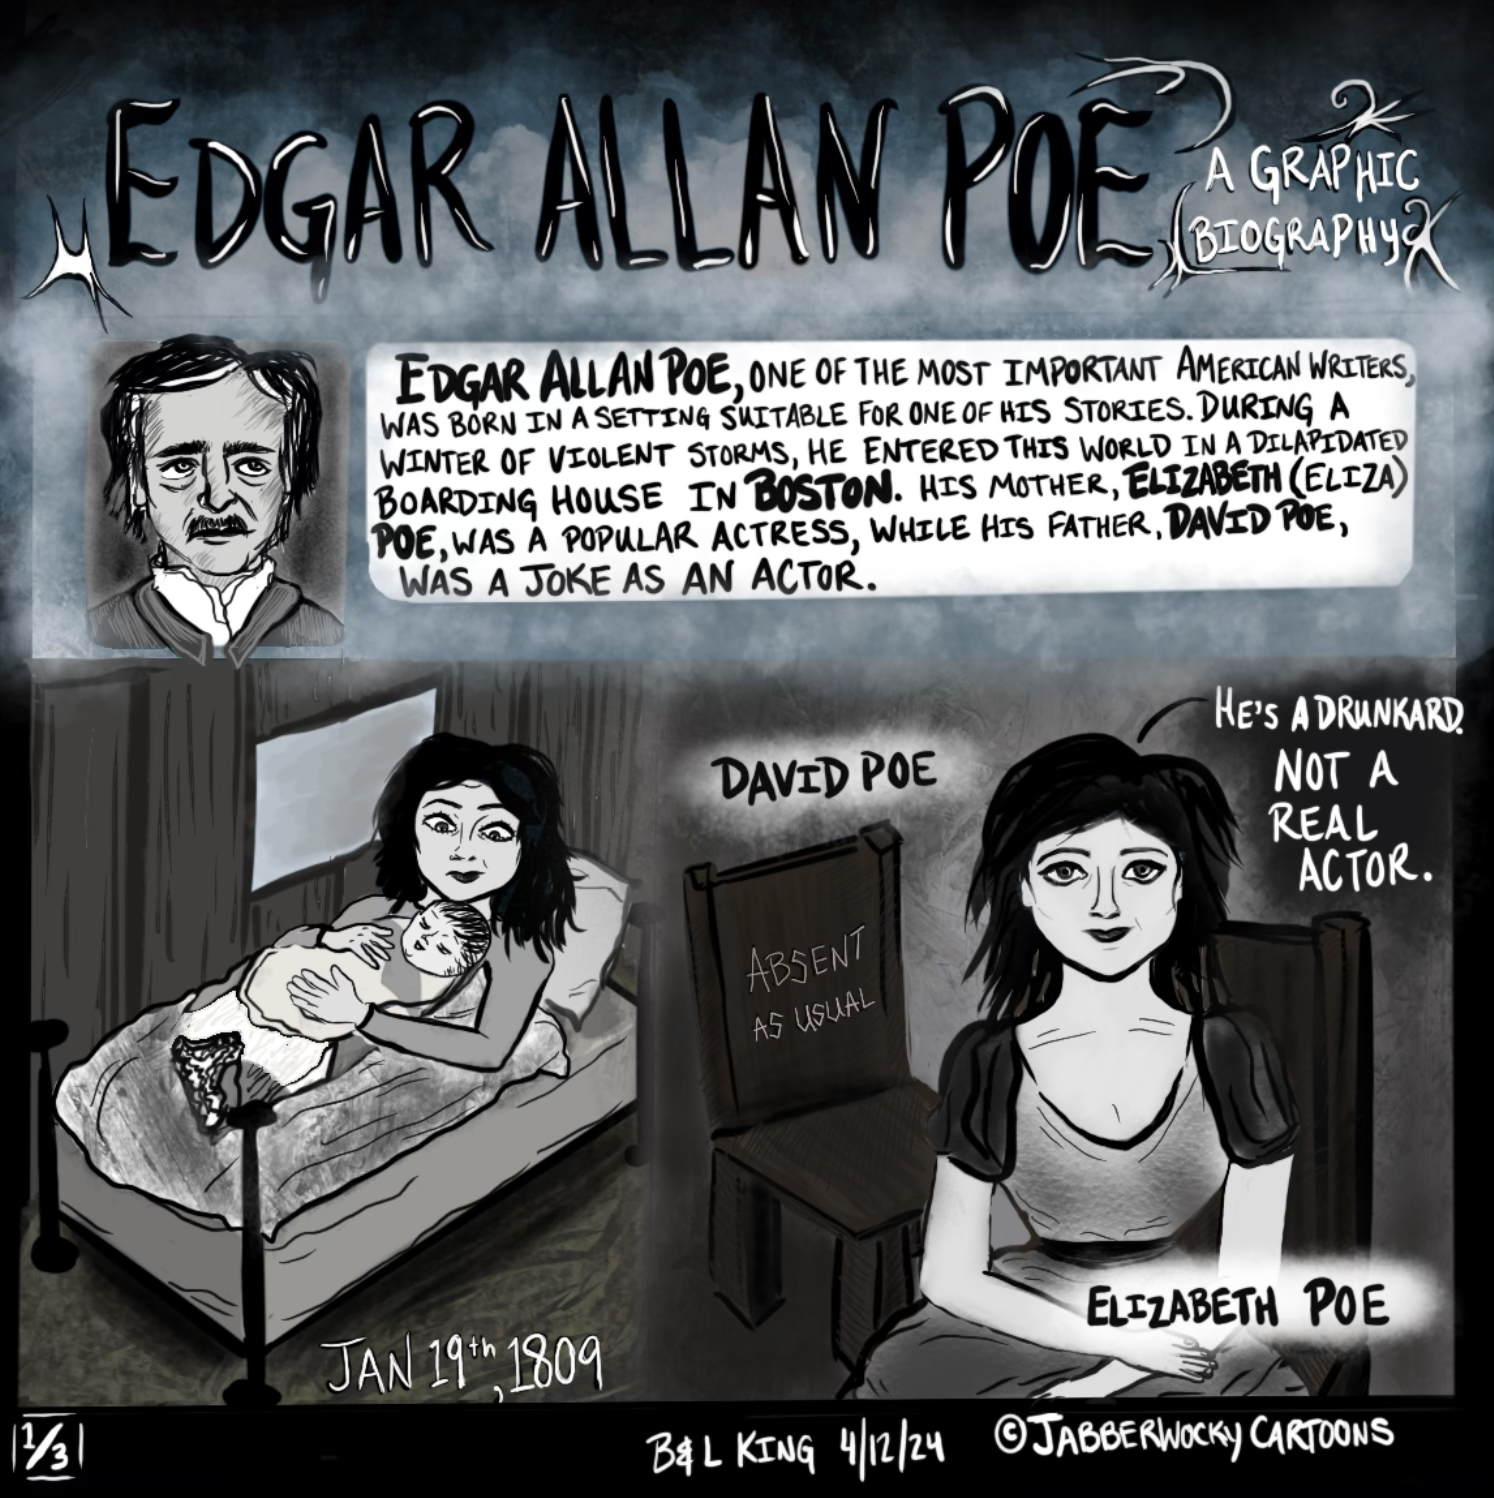 EDGAR ALLAN POE
A GRAPHIC
BIOGRAPHY
EDGAR ALLAN POE, ONE OF THE MOST IMPORTANT AMERICAN WRITERS,
WAS BORN IN A SETTING SUITABLE FOR ONE OF HIS STORIES. DURING A
WINTER OF VIOLENT STORMS, HE ENTERED THIS WORLD IN A DILAPIDATED
BOARDING HOUSE IN BOSTON. HIS MOTHER, ELIZABETH (ELIZA)
POE, WAS A POPULAR ACTRESS, WHILE HIS FATHER, DAVID POE,
WAS A JOKE AS AN ACTOR.
JAN 19th, 1809
DAVID POE
ABSENT
AS USUAL
HE'S A DRUNKARD.
NOT A
REAL
ACTOR.
ELIZABETH POE
1/3
B&L KING 4/12/24 ©JABBERWOCKY CARTOONS